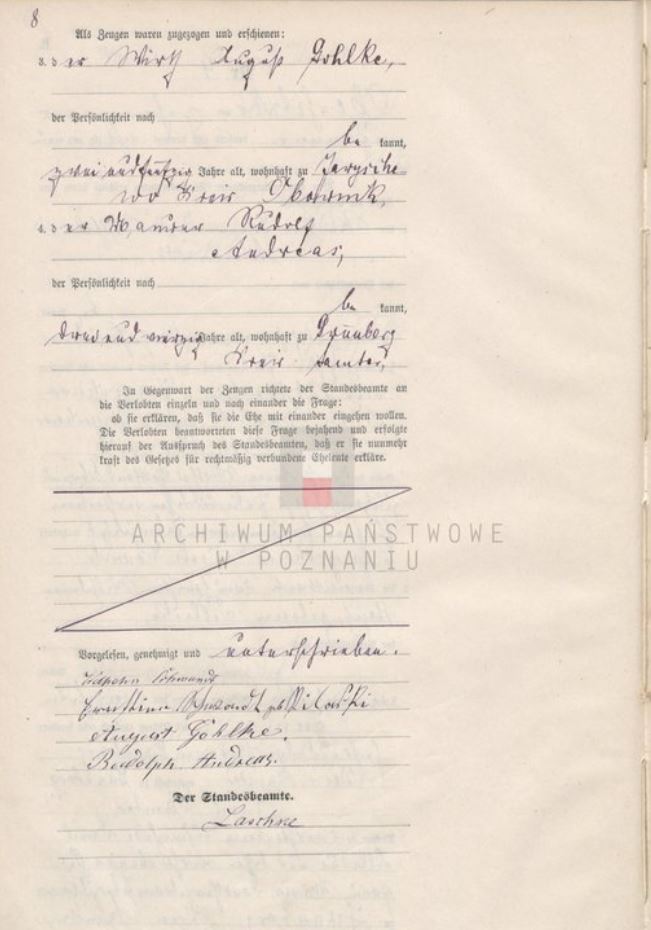 8
Als Zeugen waren zugezogen und erschienen:
3. der Wirth August Gohlke,
der Persönlichkeit nach
be kannt,
zwei und fünfzig Jahre alt, wohnhaft zu
wo Kreis Obornik,
4. der Maurer Rudolf
Andreas,
der Persönlichkeit nach
be kannt,
drei und vierzig Jahre alt, wohnhaft zu Grünberg
Kreis Samter,
In Gegenwart der Zeugen richtete der Standesbeamte an
die Verlobten einzeln und nach einander die Frage:
ob sie erklären, daß sie die Ehe mit einander eingehen wollen.
Die Verlobten beantworteten diese Frage bejahend und erfolgte
hierauf der Ausspruch des Standesbeamten, daß er sie nunmehr
kraft des Gesetzes für rechtmäßig verbundene Eheleute erkläre.
ARCHIWUM PAŃSTWOWE
W POZNANIU
Vorgelesen, genehmigt und unterschrieben.
Schwandt
Ernstine Schwandt geb
August Gohlke.
Rudolph Andreas.
Der Standesbeamte.
Laschke